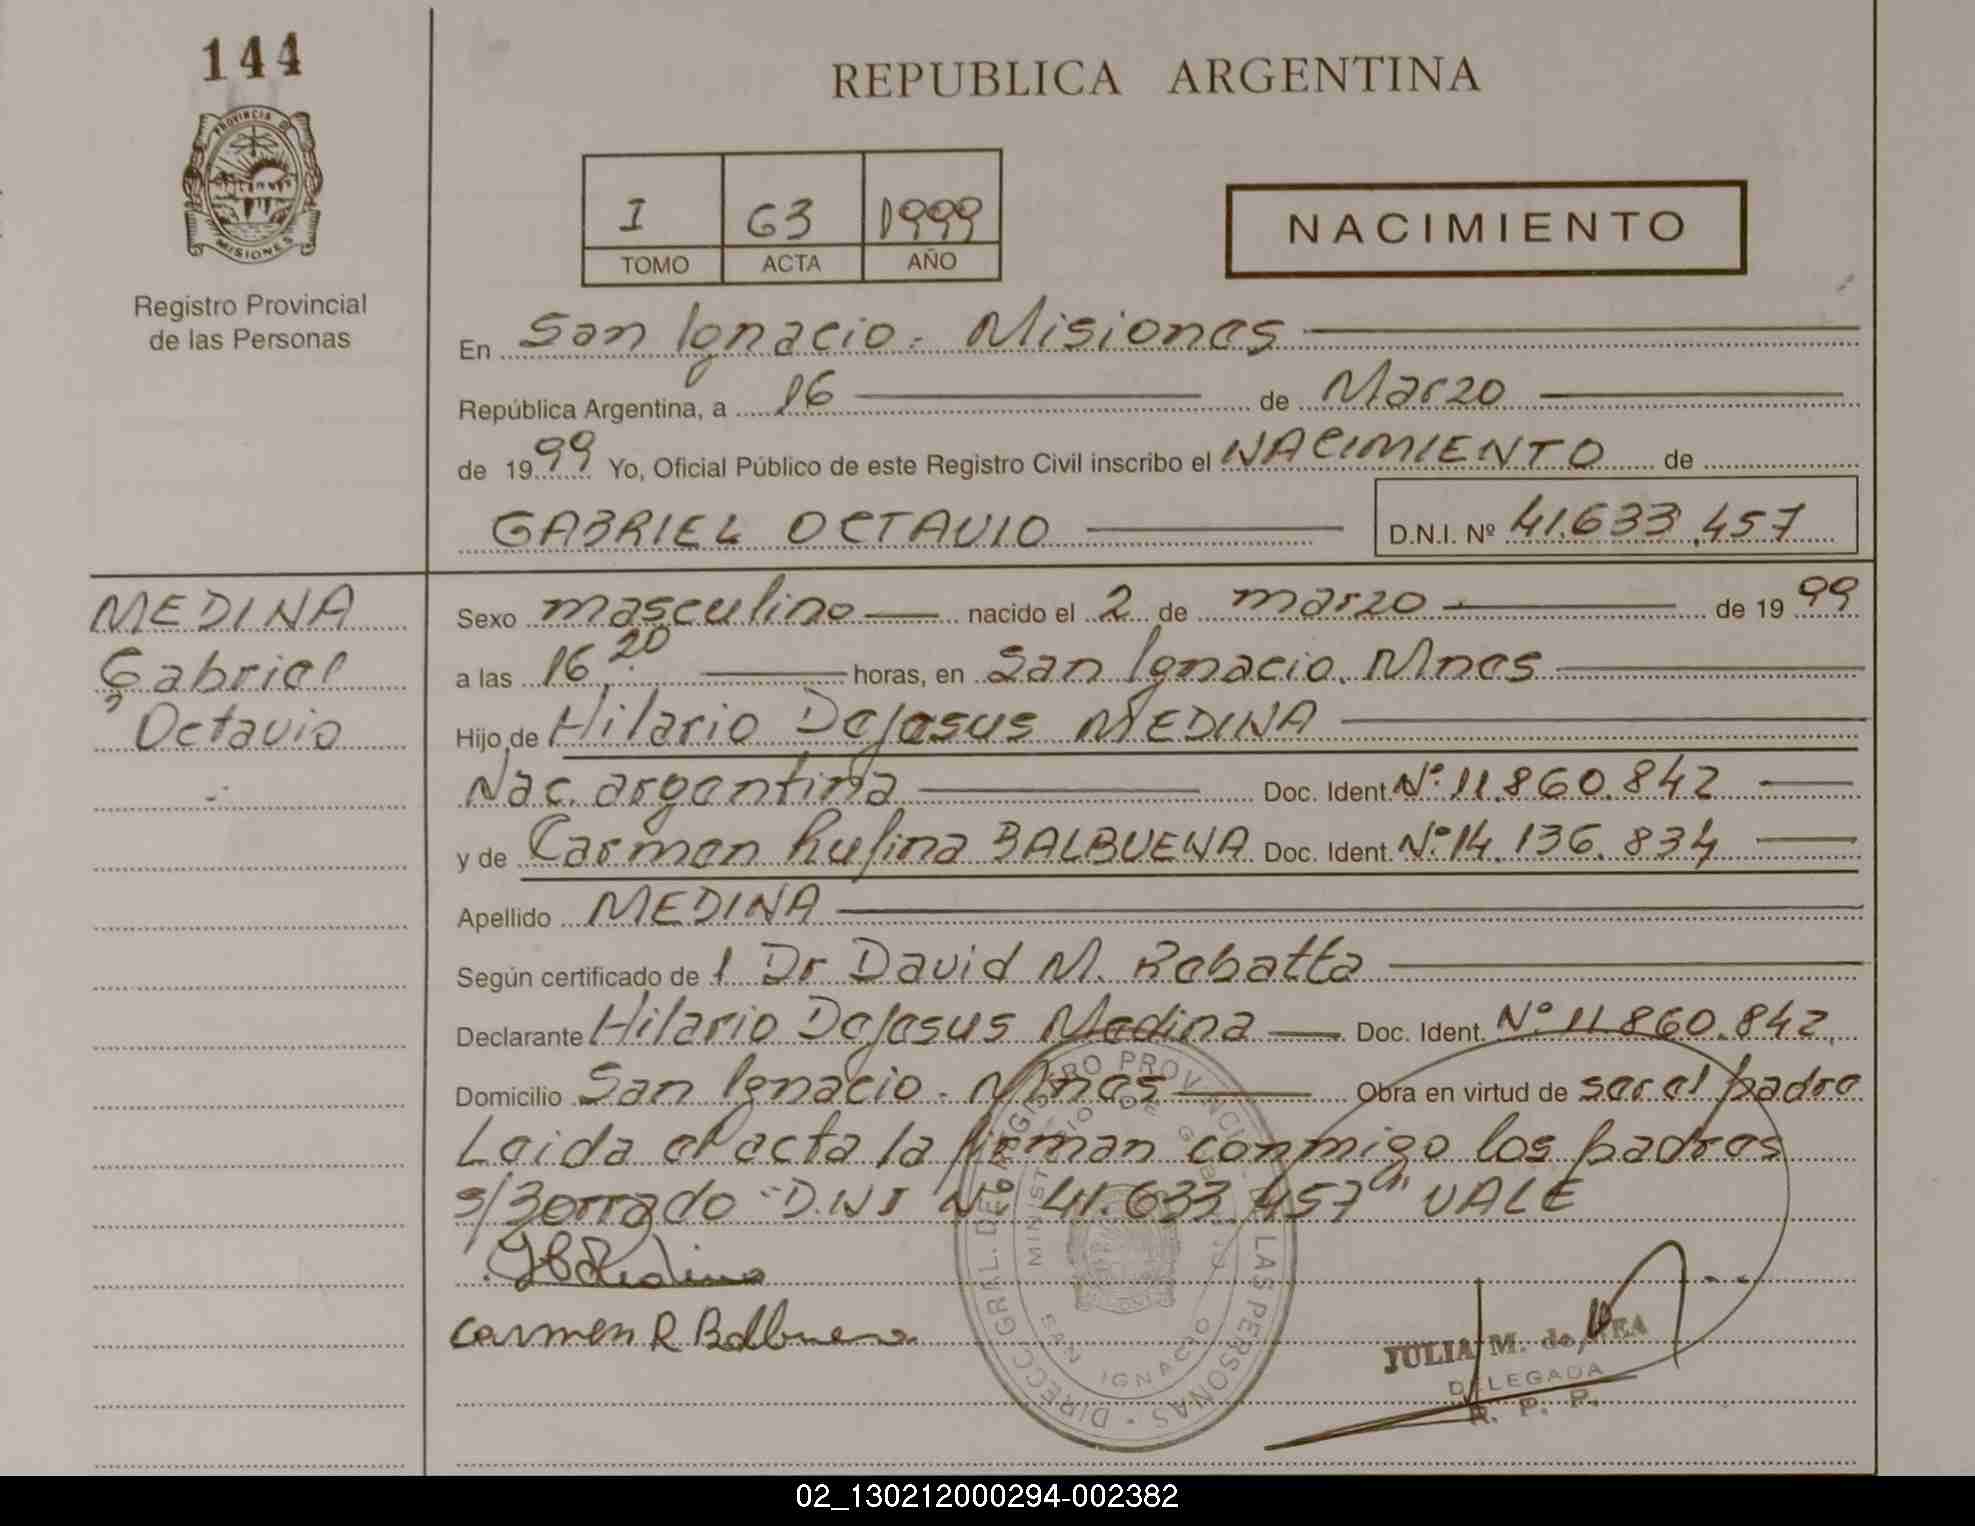 144
PROVINCIA D
MISIONES
Registro Provincial
de las Personas
REPUBLICA ARGENTINA
I 63 1999
TOMO ACTA AÑO
NACIMIENTO
En San Ignacio. Misiones
República Argentina, a 16 de Marzo
de 1999 Yo, Oficial Público de este Registro Civil inscribo el NACIMIENTO de
GABRIEL OCTAVIO D.N.I. Nº 41.633.457
MEDINA
Gabriel
Octavio
Sexo masculino nacido el 2 de marzo de 1999
a las 16.20 horas, en San Ignacio. Mnes
Hijo de Hilario DeJesus MEDINA
Nac. argentina Doc. Ident. Nº 11.860.842
y de Carmen Rufina BALBUENA Doc. Ident. Nº 14.136.834
Apellido MEDINA
Según certificado de 1 Dr David M. Rebatta
Declarante Hilario DeJesus Medina Doc. Ident. Nº 11.860.842
Domicilio San Ignacio - Mnes Obra en virtud de ser el padre
Leida el acta la firman conmigo los padres
s/Borrado "D.N.I Nº 41.633.457" VALE
Medina
Carmen R Balbuena
DIRECC. GRAL. DE REGISTRO PROVINCIAL DE LAS PERSONAS
MINISTERIO DE GOBIERNO
SAN IGNACIO
JULIA M. de
DELEGADA
R. P. P.
02_130212000294-002382